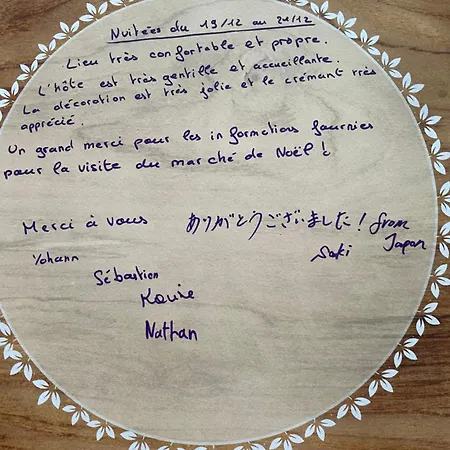 Nuitées du 19/12 au 21/12
Lieu très confortable et propre.
L'hôte est très gentille et accueillante.
La décoration est très jolie et le crémant très
apprécié.
Un grand merci pour les informations fournies
pour la visite du marché de Noël !
Merci à vous
ありがとうございました! from
Japan
Saki
Yohann
Sébastien
Nathan